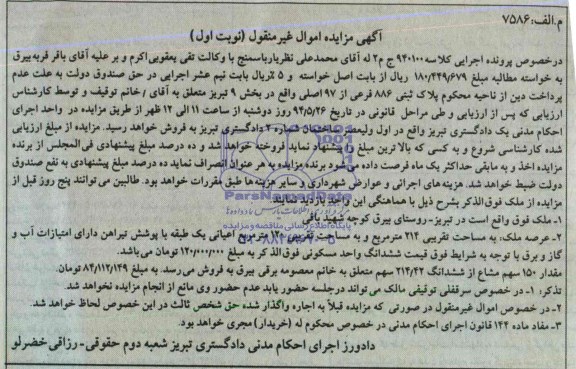 م.الف:۷۵۸۶
آگهی مزایده اموال غیرمنقول (نوبت اول)
درخصوص پرونده اجرایی کلاسه ۹۴۰۱۰۰ ج م۲ له آقای محمدعلی نظریارباسمنج با وکالت تقی یعقوبی‌اکرم و بر علیه آقای باقر قربه‌بیرق
به خواسته مطالبه مبلغ ۱۸۰/۴۴۹/۶۷۹ ریال از بابت اصل خواسته و ریال بابت نیم عشر اجرایی در حق صندوق دولت به علت عدم
پرداخت دین از ناحیه محکوم پلاک ثبتی ۸۸۶ فرعی از ۹۷ اصلی واقع در بخش ۹ تبریز متعلق به آقای / خانم توقیف و توسط کارشناس
ارزیابی که پس از ارزیابی و طی مراحل قانونی در تاریخ ۹۴/۵/۲۶ روز دوشنبه از ساعت ۱۱ الی ۱۲ ظهر از طریق مزایده در واحد اجرای
احکام مدنی یک دادگستری تبریز واقع در اول ولیعصر ساختمان شماره ۲ دادگستری تبریز به فروش خواهد رسید. مزایده از مبلغ ارزیابی
شده کارشناسی شروع و به کسی که بالا ترین مبلغ را پیشنهاد نماید فروخته خواهد شد و ده درصد مبلغ پیشنهادی فی‌المجلس از برنده
مزایده اخذ و به مابقی حداکثر یک ماه فرصت داده می‌شود برنده مزایده به هر عنوان انصراف نماید ده درصد مبلغ پیشنهادی به نفع صندوق
دولت ضبط خواهد شد. هزینه‌های اجرائی و عوارض شهرداری و سایر هزینه‌ها طبق مقررات خواهد بود. طالبین می‌توانند پنج روز قبل از
مزایده از ملک فوق‌الذکر بشرح ذیل با هماهنگی این واحد بازدید نمایند.
۱- ملک فوق واقع است در تبریز-روستای بیرق کوچه شهید باقی
۲- عرصه ملک، به مساحت تقریبی ۲۱۴ مترمربع و به مساحت تقریبی ۱۲۰ متر مربع اعیانی یک طبقه با پوشش تیرآهن دارای امتیازات آب و
گاز و برق با توجه به شرایط فوق قیمت ششدانگ واحد مسکونی فوق‌الذکر به مبلغ ۱۲۰/۰۰۰/۰۰۰ تومان می‌باشد.
مقدار ۱۵۰ سهم مشاع از ششدانگ ۲۱۴/۴۲ سهم متعلق به خانم معصومه برقی بیرق به فروش می‌رسد. به مبلغ ۸۴/۱۱۲/۱۴۹ تومان.
تذکر: ۱- در خصوص سرقفلی توقیفی مالک می تواند درجلسه حضور یابد عدم حضور وی مانع از انجام مزایده نخواهد شد.
۲- در خصوص اموال غیرمنقول در صورتی که مزایده قبلاً به اجاره واگذار شده حق شخص ثالث در این خصوص لحاظ خواهد شد.
۳- مفاد ماده ۱۴۴ قانون اجرای احکام مدنی در خصوص محکوم له (خریدار) مجری خواهد بود.
دادورز اجرای احکام مدنی دادگستری تبریز شعبه دوم حقوقی- رزاقی خضرلو